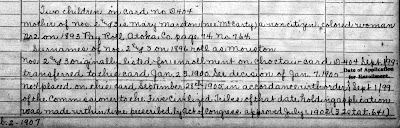 Two children on card no D404
mother of nos. 2 & 3 is Mary Marston (nee McCarty) a noncitizen, colored woman
No 2 on 1893 Pay Roll, Atoka Co. page 74 No 764.
Surnames of nos 2 & 3 on 1896 roll as Moreston
nos. 2 & 3 originally listed for enrollment on Choctaw card D 404 Sept 1/99:
transferred to this card Jan 23, 1905. See decision of Jan 7, 1905.
no 1 placed on this card September 28th 1905 in accordance with order
of the Commissioner to the Five Civilized Tribes of that date, holding application
was made within time prescribed by Act of Congress approved July 1, 1902 (32 Stat. 641)
Sept 1/99
Date of Application
for Enrollment.
6-2-1907